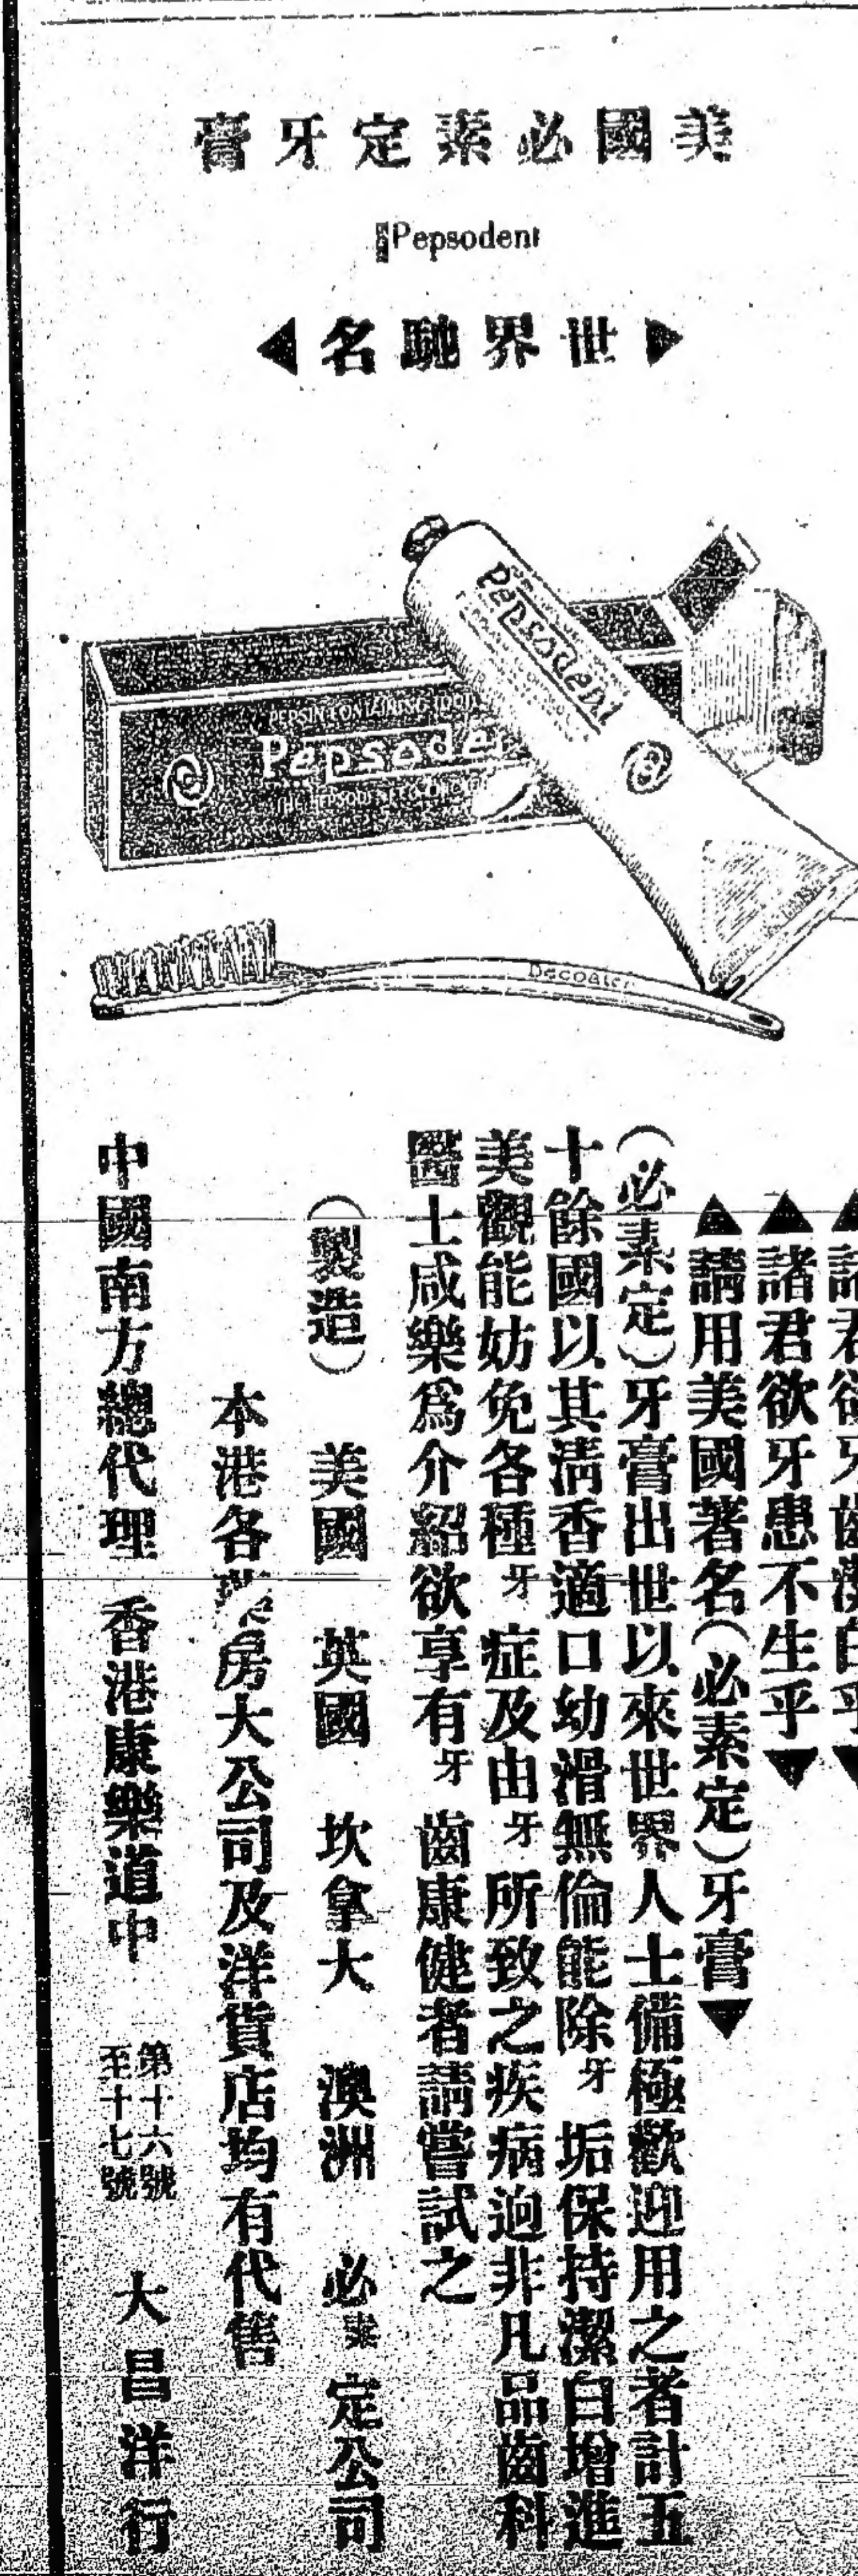 美國必素定牙膏
Pepsodent
▶世界馳名◀
PEPSIN CONTAINING
Pepsodent
Pepsodent
Decoater
諸君欲牙齒潔白乎▼
▲諸君欲牙患不生乎▼
▲請用美國著名(必素定)牙膏▼
(必素定)牙膏出世以來世界人士備極歡迎用之者計五
十餘國以其淸香適口幼滑無倫能除牙垢保持潔白增進
美觀能妨免各種牙症及由牙所致之疾病逈非凡品齒科
醫士咸樂爲介紹欲享有牙齒康健者請嘗試之
(製造) 美國 英國 坎拿大 澳洲 必素定公司
本港各藥房大公司及洋貨店均有代售
中國南方總代理 香港康樂道中 第十六號至十七號 大昌洋行